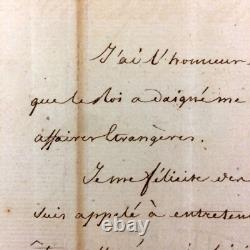 J'ai l'honneur
que le Roi a daigné me
affaires Etrangères.
Je me félicite d'en
suis appelé à entreten